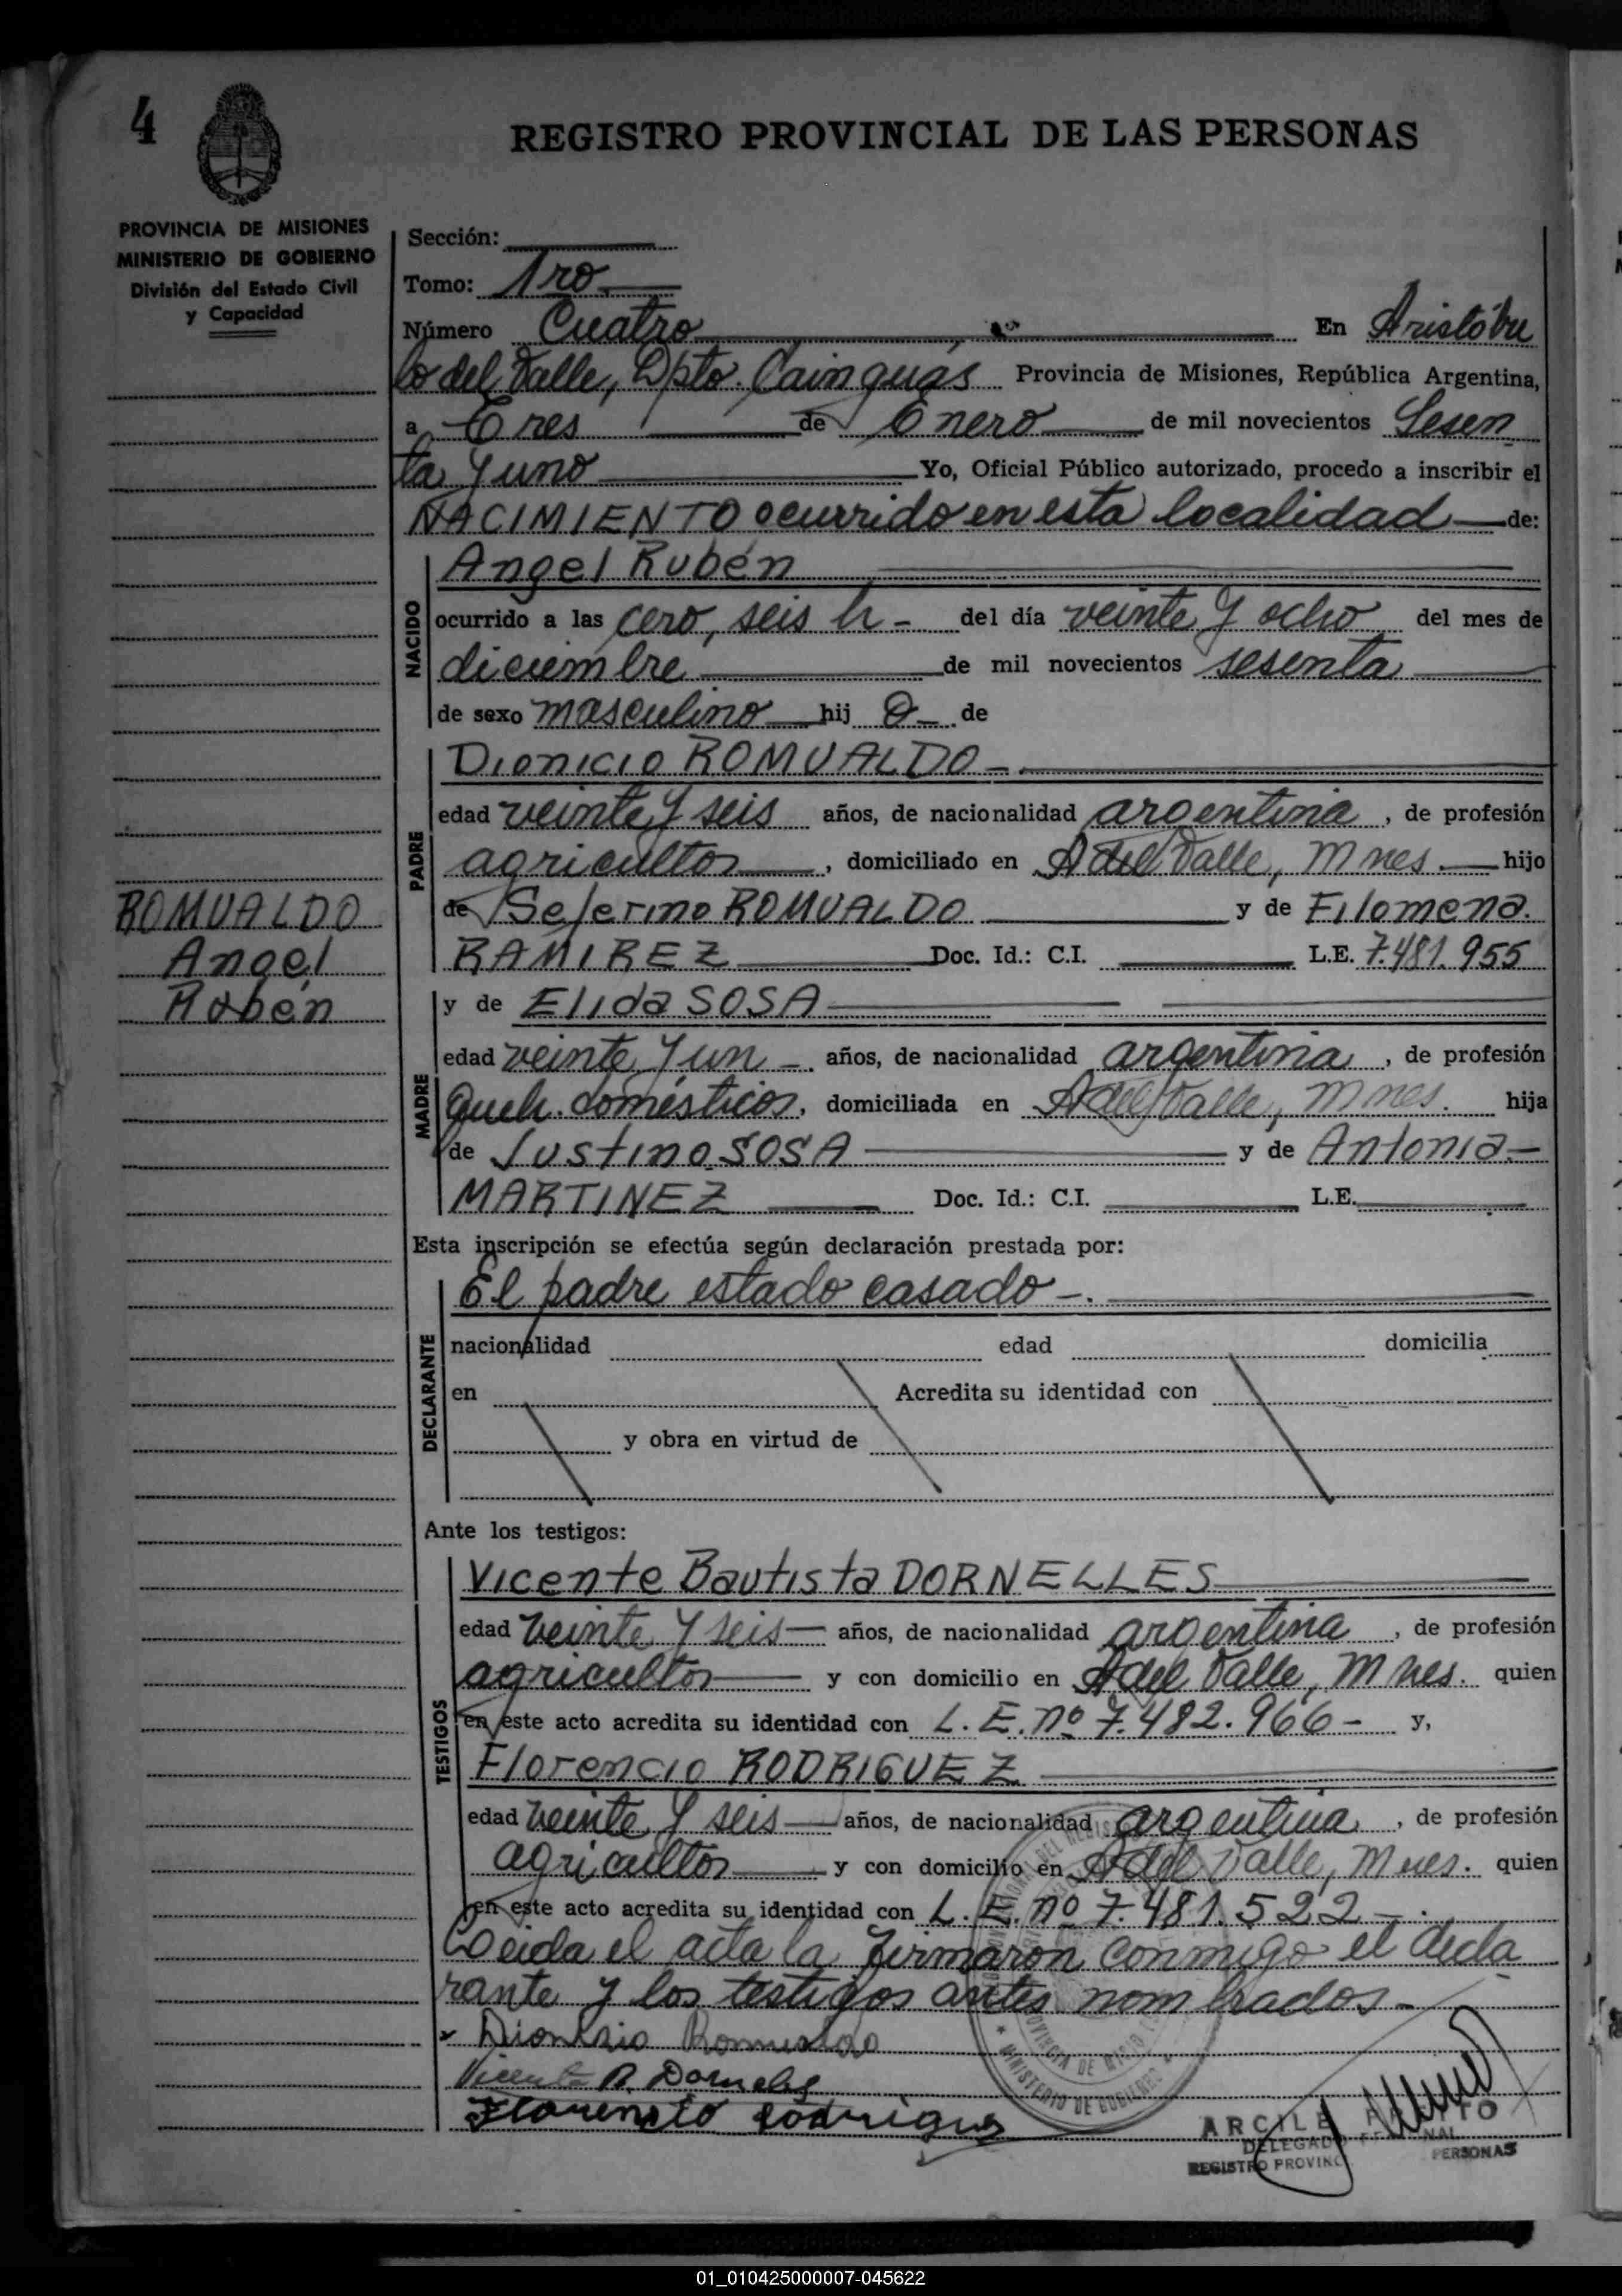 4
REGISTRO PROVINCIAL DE LAS PERSONAS
PROVINCIA DE MISIONES
MINISTERIO DE GOBIERNO
División del Estado Civil
y Capacidad
Sección:
Tomo: 1ro
Número Cuatro En Aristóbu
lo del Valle, Dpto. Cainguás Provincia de Misiones, República Argentina,
a Tres de Enero de mil novecientos Sesen
ta y uno Yo, Oficial Público autorizado, procedo a inscribir el
NACIMIENTO ocurrido en esta localidad de:
NACIDO
Angel Rubén
ocurrido a las cero, seis h - del día veinte y ocho del mes de
diciembre de mil novecientos sesenta
de sexo masculino hij o de
PADRE
Dionicio ROMUALDO -.
edad veinte y seis años, de nacionalidad argentina, de profesión
agricultor, domiciliado en A del Valle, Mnes. hijo
de Seferino ROMUALDO y de Filomena
RAMIREZ Doc. Id.: C.I. L.E. 7.481.955
ROMUALDO
Angel
Rubén
y de Elida SOSA
MADRE
edad veinte y un -. años, de nacionalidad argentina, de profesión
queh. domésticos, domiciliada en A del Valle, Mnes. hija
de Justino SOSA y de Antonia -
MARTINEZ Doc. Id.: C.I. L.E.
Esta inscripción se efectúa según declaración prestada por:
DECLARANTE
El padre estado casado -.
nacionalidad edad domicilia
en Acredita su identidad con
y obra en virtud de
Ante los testigos:
TESTIGOS
Vicente Bautista DORNELLES
edad veinte y seis años, de nacionalidad argentina, de profesión
agricultor y con domicilio en A del Valle, Mnes. quien
en este acto acredita su identidad con L.E. nº 7.482.966 - y,
Florencio RODRIGUEZ
edad veinte y seis años, de nacionalidad argentina, de profesión
agricultor y con domicilio en A del Valle, Mnes. quien
en este acto acredita su identidad con L.E. nº 7.481.522 -.
Leida el acta la firmaron conmigo el decla
rante y los testigos antes nombrados -
Dionicio Romualdo
Vicente B. Dornelles
Florencio Rodriguez
MINISTERIO DE GOBIERNO
DELEGADO
REGISTRO PROVINC PERSONAS
01_010425000007-045622